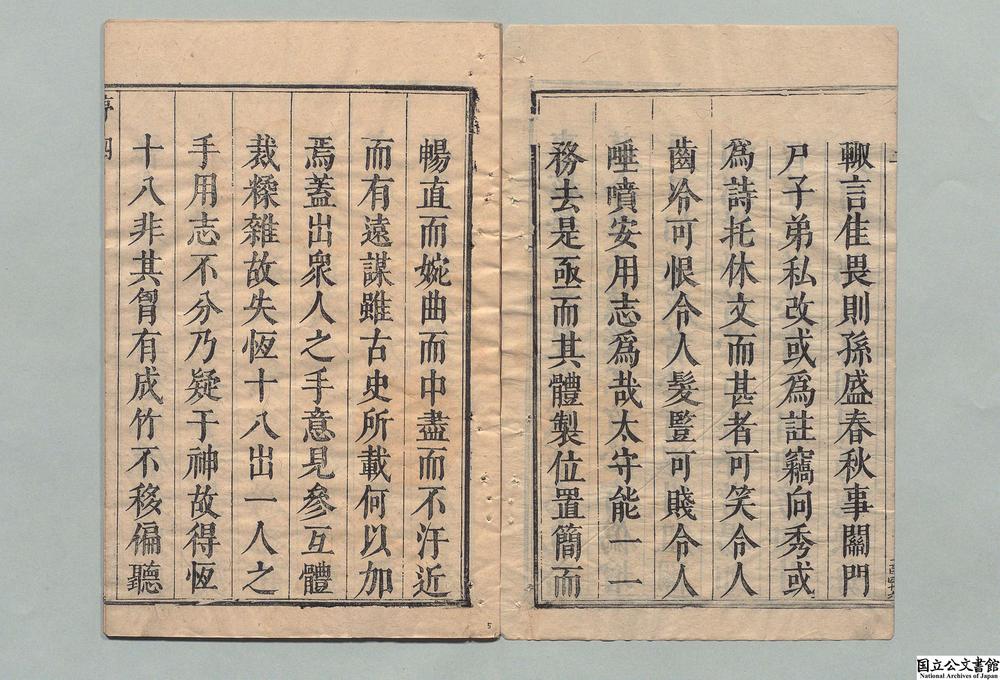 輙言隹畏則孫盛春秋事關門
戸子弟私改或爲註竊向秀或
爲詩托休文而甚者可笑令人
齒冷可恨令人髮豎可賤令人
唾噴安用志爲哉太守能一一
務去是亟而其體製位置簡而
暢直而婉曲而中盡而不汙近
而有遠謀雖古史所載何以加
焉蓋出衆人之手意見參互體
裁糅雜故失恆十八出一人之
手用志不分乃疑于神故得恆
十八非其胷有成竹不移偏聽
序 四
5
国立公文書館
National Archives of Japan